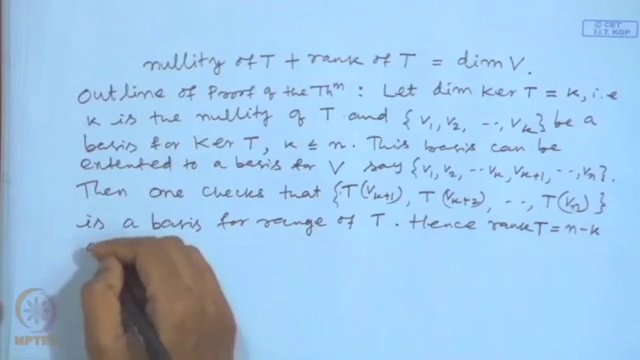 © CET
I.I.T. KGP
nullity of T + rank of T = dim V.
Outline of Proof of the Thm : Let dim Ker T = k, i.e
k is the nullity of T and {v1, v2, ..., vk} be a
basis for Ker T, k ≤ n. This basis can be
extented to a basis for V say {v1, v2, ... vk, vk+1, ..., vn}.
Then one checks that {T(vk+1), T(vk+2), ..., T(vn)}
is a basis for range of T. Hence rank T = n-k
NPTEL